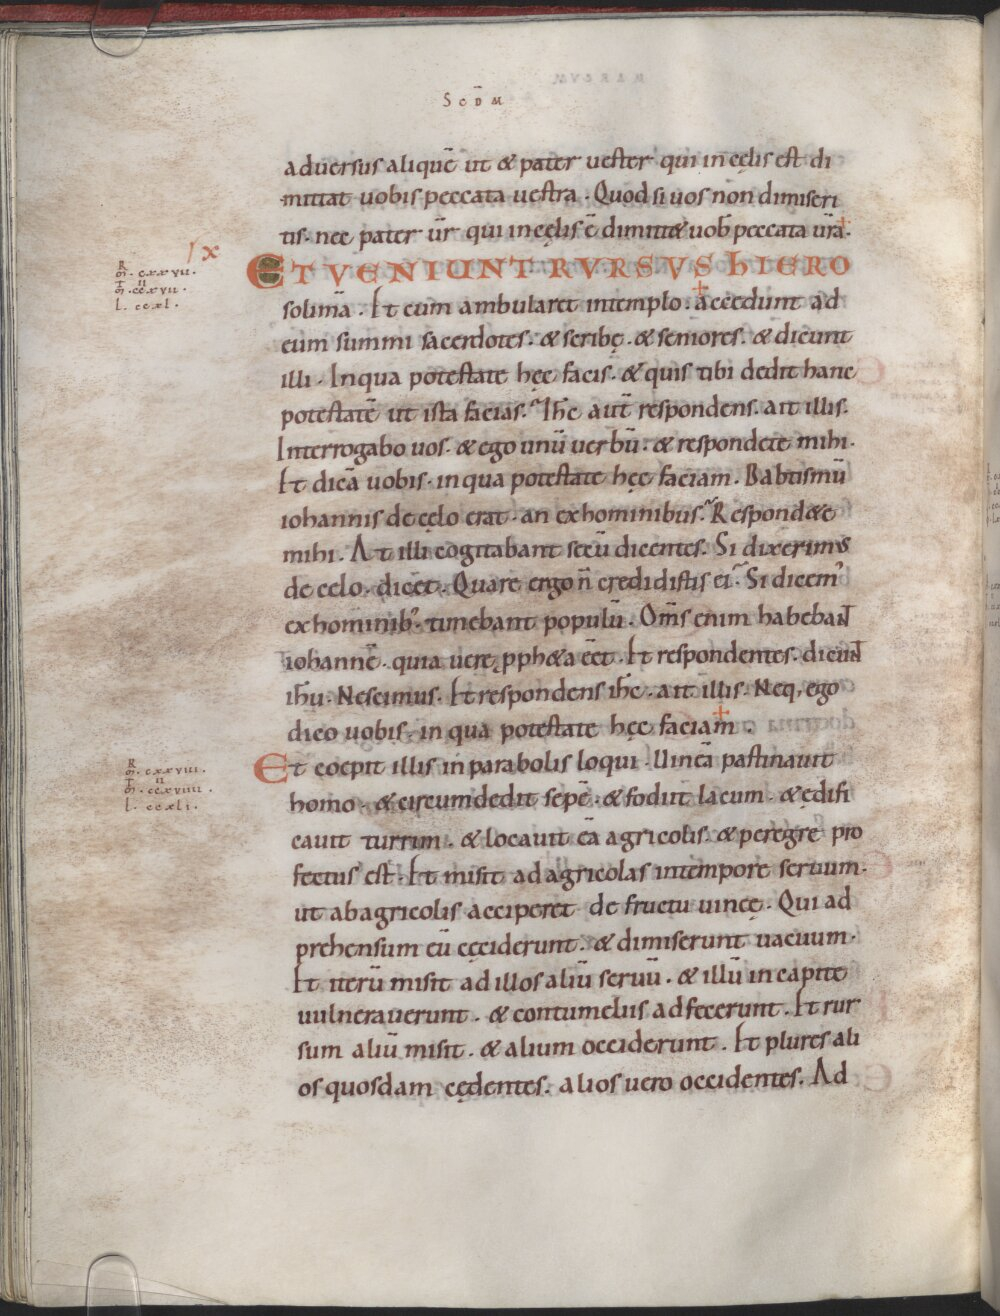 Scd̄M
aduersus aliquē ut & pater uester qui in cęlis est di
mittat uobis peccata uestra . Quod si uos non dimiseri
tis . nec pater ūr qui in cęlis ē dimitt& uob̄ peccata ūra .
X
ET VENIUNT RVRSVS hIERO
R
m̄ . cxxvii .
T II
m̄ . ccxvii .
L . ccxl .
solimā . Et cum ambularet in templo . accedunt ad
eum summi sacerdotes . & scribę . & seniores . & dicunt
illi . In qua potestate hęc facis . & quis tibi dedit hanc
potestatē ut ista facias . Ihc̄ aut̄ respondens . ait illis .
Interrogabo uos . & ego unū uerbū . & respondete mihi .
Et dicā uobis . in qua potestate hęc faciam . Babtismū
iohannis de cęlo erat . an ex hominibus . Respond&e
mihi . At illi cogitabant secū dicentes . Si dixerimus
de celo . dicet . Quare ergo n̄ credidistis ei . Si dicem'
ex hominib' . timebant populū . Om̄s enim habebaNT
iohannē . quia uere pph&a eēt . Et respondentes . dicuNT
ih̄u . Nescimus . Et respondens ihc̄ . ait illis . Neq, ego
dico uobis . in qua potestate hęc faciam .
R
m̄ . cxxviii .
T II
m̄ . ccxviiii .
L . ccxli .
Et coepit illis in parabolis loqui . Uineā pastinauit
homo . & circumdedit sepē . & fodiit lacum . & ędifi
cauit turrim . & locauit eā agricolis . & peregre pro
fectus est . Et misit ad agricolas in tempore seruum .
ut ab agricolis acciperet de fructu uineę . Qui ad
prehensum eū cęciderunt . & dimiserunt uacuum .
Et iterū misit ad illos aliū seruū . & illū in capite
uulnerauerunt . & contumeliis adfecerunt . Et rur
sum aliū misit . & alium occiderunt . Et plures ali
os quosdam cędentes . alios uero occidentes . Ad